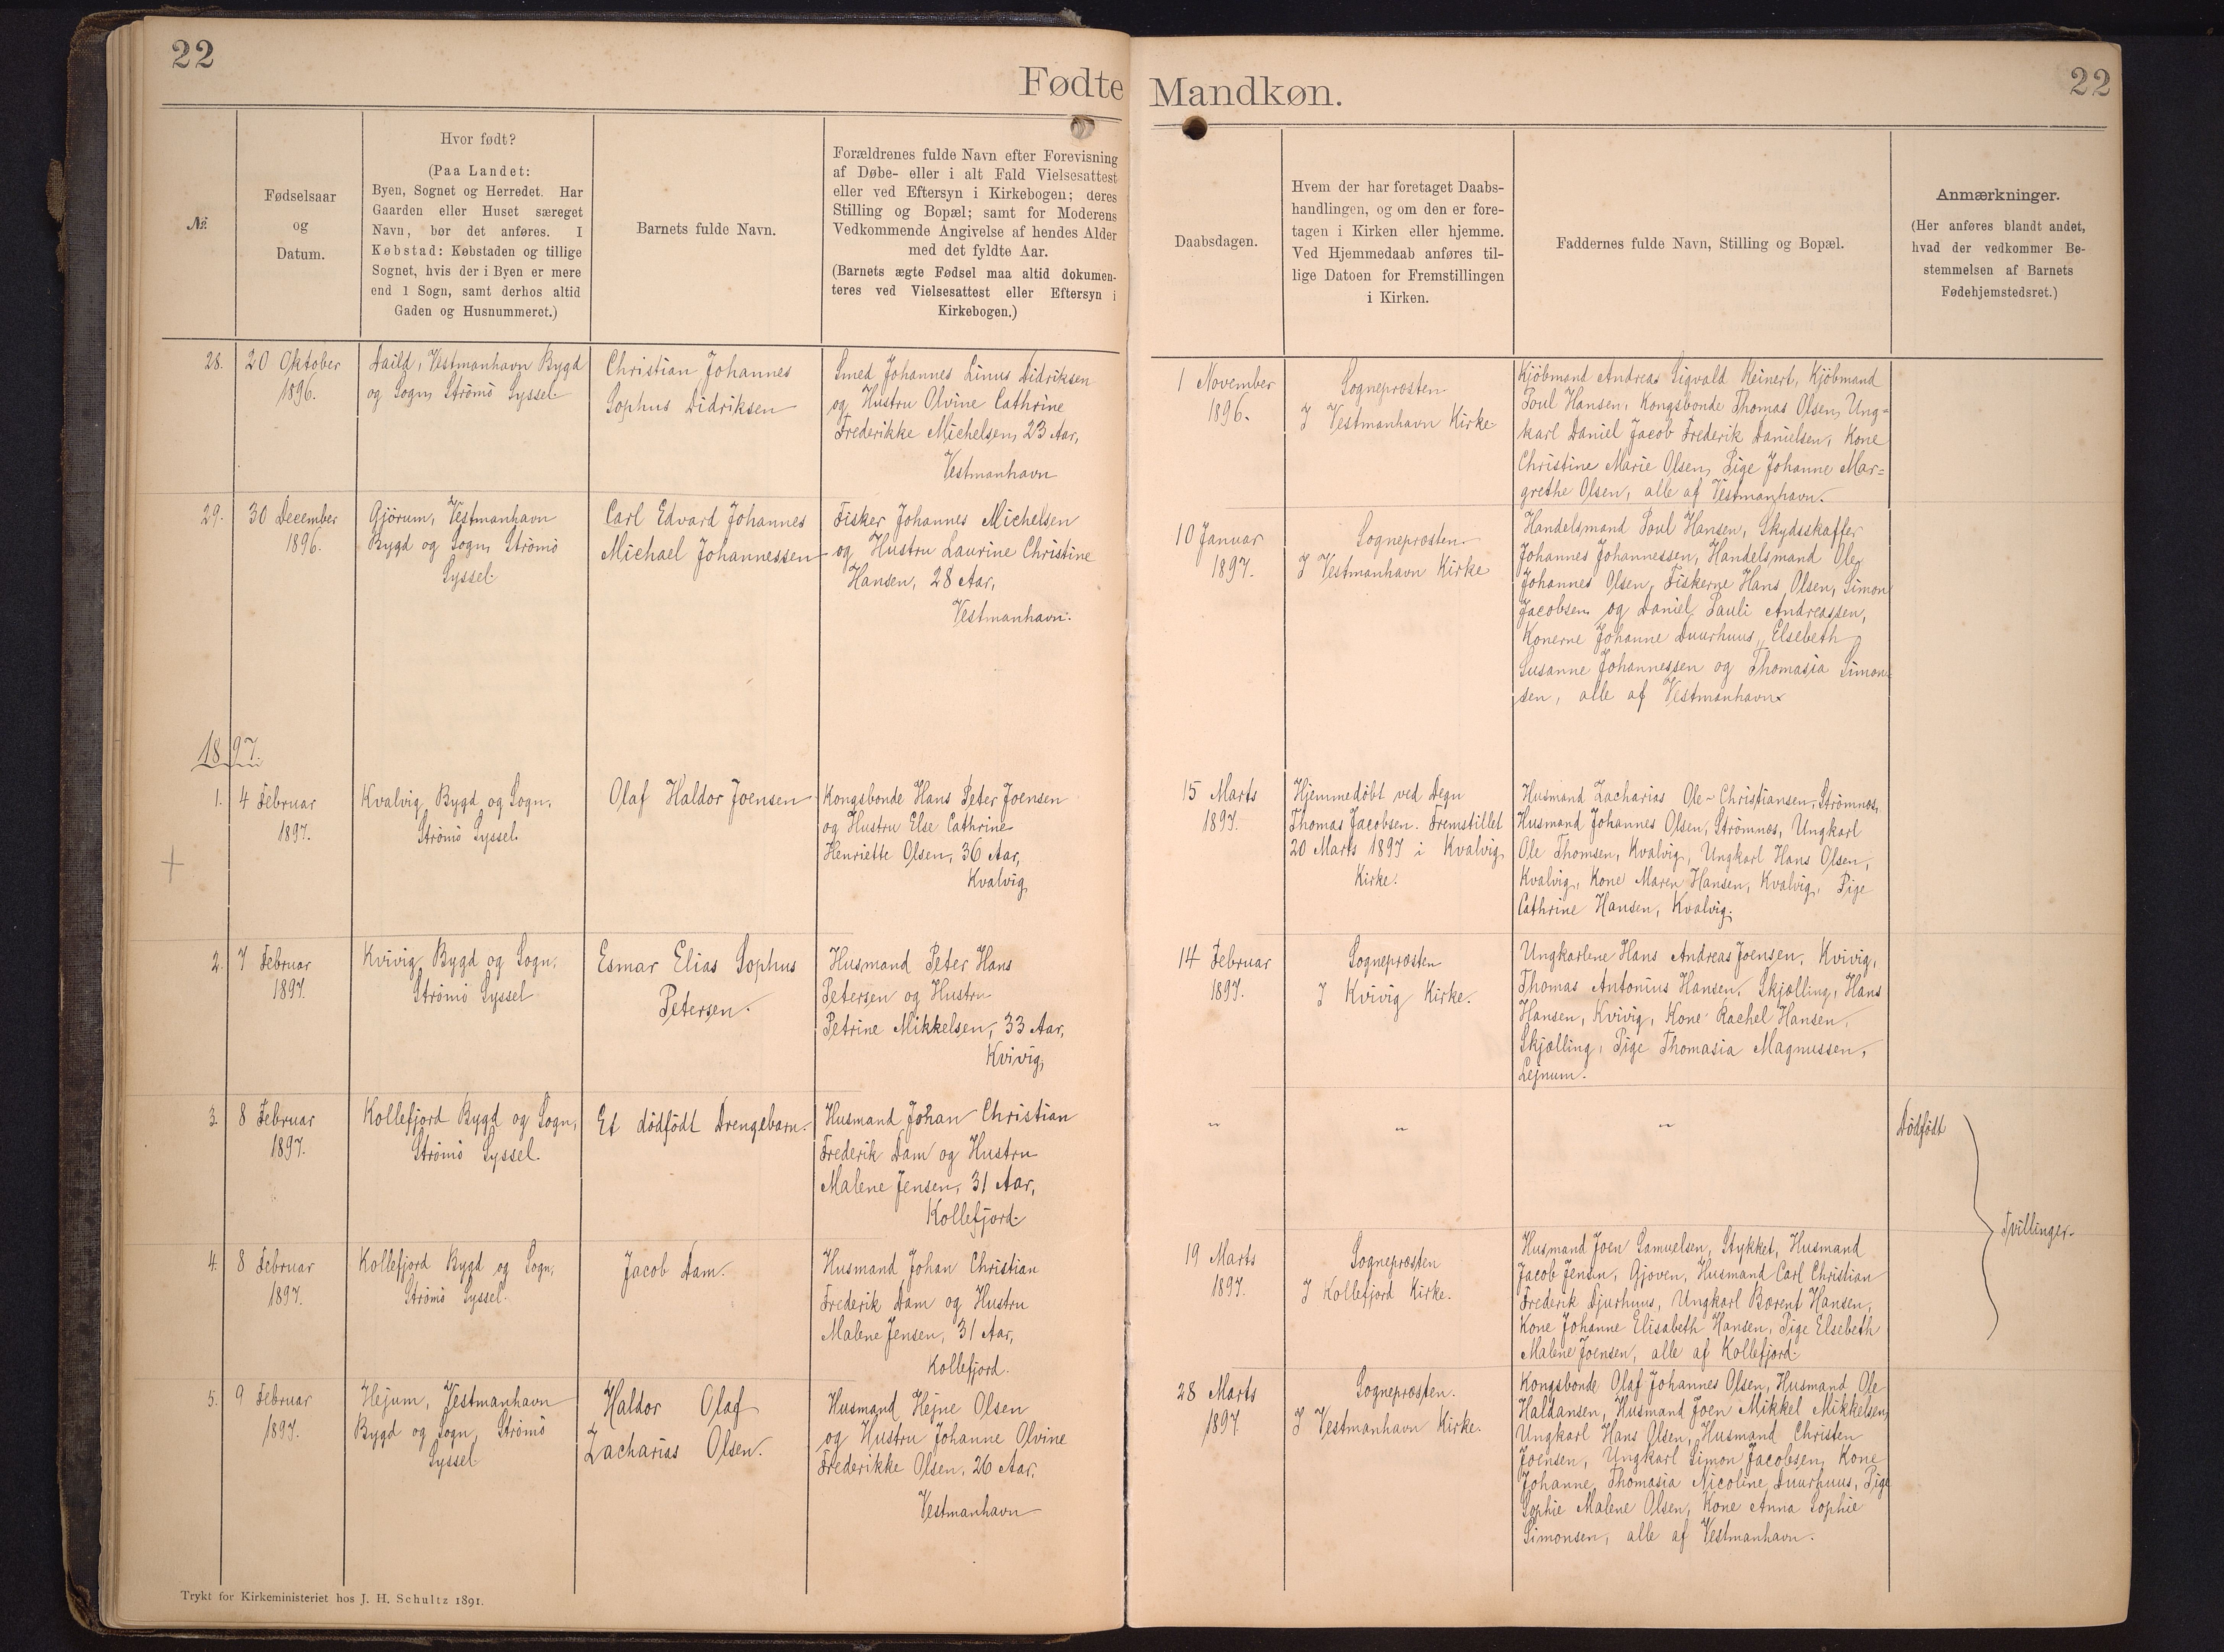 22
Fødte
Mandkøn.
22
№.
Fødselsaar
og
Datum.
Hvor født?
(Paa Landet:
Byen, Sognet og Herredet. Har
Gaarden eller Huset særeget
Navn, bør det anføres. I
Købstad: Købstaden og tillige
Sognet, hvis der i Byen er mere
end 1 Sogn, samt derhos altid
Gaden og Husnummeret.)
Barnets fulde Navn.
Forældrenes fulde Navn efter Forevisning
af Døbe- eller i alt Fald Vielsesattest
eller ved Eftersyn i Kirkebogen; deres
Stilling og Bopæl; samt for Moderens
Vedkommende Angivelse af hendes Alder
med det fyldte Aar.
(Barnets ægte Fødsel maa altid dokumen-
teres ved Vielsesattest eller Eftersyn i
Kirkebogen.)
Daabsdagen.
Hvem der har foretaget Daabs-
handlingen, og om den er fore-
tagen i Kirken eller hjemme.
Ved Hjemmedaab anføres til-
lige Datoen for Fremstillingen
i Kirken.
Faddernes fulde Navn, Stilling og Bopæl.
Anmærkninger.
(Her anføres blandt andet,
hvad der vedkommer Be-
stemmelsen af Barnets
Fødehjemstedsret.)
28.
20 Oktober
1896.
Vestmanhavn Bygd
og Sogn, Strömö Syssel.
Christian Johannes
Sophus Didriksen
Smed Johannes Linus Didriksen
og Hustru Olvine Cathrine
Frederikke Michelsen, 23 Aar,
Vestmanhavn
1 November
1896.
Sognepræsten
I Vestmanhavn Kirke
Kjöbmand Andreas Sigvald Heinert, Kjöbmand
Poul Hansen, Kongsbonde Thomas Olsen, Ung=
karl Daniel Jacob Frederik Danielsen, Kone
Christine Marie Olsen, Pige Johanne Mar=
grethe Olsen, alle af Vestmanhavn.
29.
30 December
1896.
Gjörum, Vestmanhavn
Bygd og Sogn, Strömö
Syssel.
Carl Edvard Johannes
Michael Johannessen
Fisker Johannes Michelsen
og Hustru Laurine Christine
Hansen, 28 Aar,
Vestmanhavn.
10 Januar
1897.
Sognepræsten
I Vestmanhavn Kirke
Handelsmand Poul Hansen, Skydsskaffer
Johannes Johannessen, Handelsmand Ole
Johannes Olsen, Fiskerne Hans Olsen, Simon
Jacobsen og Daniel Pauli Andreassen,
Konerne Johanne Duurhuus, Elsebeth
Susanne Johannessen og Thomasia Simon=
sen, alle af Vestmanhavn
1897.
1.
4 Februar
1897.
Kvalvig Bygd og Sogn,
Strömö Syssel.
Olaf Haldor Joensen
Kongsbonde Hans Peter Joensen
og Hustru Else Cathrine
Henriette Olsen, 36 Aar,
Kvalvig
15 Marts
1897.
Hjemmedöbt ved Degn
Thomas Jacobsen. Fremstillet
20 Marts 1897 i Kvalvig
Kirke.
Husmand Zacharias Ole-Christiansen, Strömnæs,
Husmand Johannes Olsen, Strömnæs, Ungkarl
Ole Thomsen, Kvalvig, Ungkarl Hans Olsen,
Kvalvig, Kone Maren Hansen, Kvalvig, Pige
Cathrine Hansen, Kvalvig.
2.
7 Februar
1897.
Kvivig Bygd og Sogn,
Strömö Syssel
Esmar Elias Sophus
Petersen.
Husmand Peter Hans
Petersen og Hustru
Petrine Mikkelsen, 33 Aar,
Kvivig,
14 Februar
1897.
Sognepræsten
I Kvivig Kirke.
Ungkarlene Hans Andreas Joensen, Kvivig,
Thomas Antonius Hansen, Skjælling, Hans
Hansen, Kvivig, Kone Rachel Hansen,
Skjælling, Pige Thomasia Magnussen,
Lejnum.
3.
8 Februar
1897.
Kollefjord Bygd og Sogn,
Strömö Syssel.
Et dödfödt Drengebarn.
Husmand Johan Christian
Frederik Dam og Hustru
Malene Jensen, 31 Aar,
Kollefjord.
"
"
"
Dödfödt
Tvillinger.
4.
8 Februar
1897.
Kollefjord Bygd og Sogn,
Strömö Syssel.
Jacob Dam.
Husmand Johan Christian
Frederik Dam og Hustru
Malene Jensen, 31 Aar,
Kollefjord.
19 Marts
1897.
Sognepræsten
I Kollefjord Kirke.
Husmand Joen Samuelsen, Stykket, Husmand
Jacob Jensen, Gjoven, Husmand Carl Christian
Frederik Djurhuus, Ungkarl Bærent Hansen,
Kone Johanne Elisabeth Hansen, Pige Elsebeth
Malene Joensen, alle af Kollefjord.
5.
9 Februar
1897.
Hejum, Vestmanhavn
Bygd og Sogn, Strömö
Syssel
Haldor Olaf
Zacharias Olsen.
Husmand Hejne Olsen
og Hustru Johanne Olvine
Frederikke Olsen, 26 Aar,
Vestmanhavn
28 Marts
1897
Sognepræsten.
I Vestmanhavn Kirke.
Kongsbonde Olaf Johannes Olsen, Husmand Ole
Haldansen, Husmand Joen Mikkel Mikkelsen,
Ungkarl Hans Olsen, Husmand Christen
Joensen, Ungkarl Simon Jacobsen, Kone
Johanne Thomasia Nicoline Duurhuus, Pige
Sophie Malene Olsen, Kone Anna Sophie
Simonsen, alle af Vestmanhavn.
Trykt for Kirkeministeriet hos J. H. Schultz 1891.